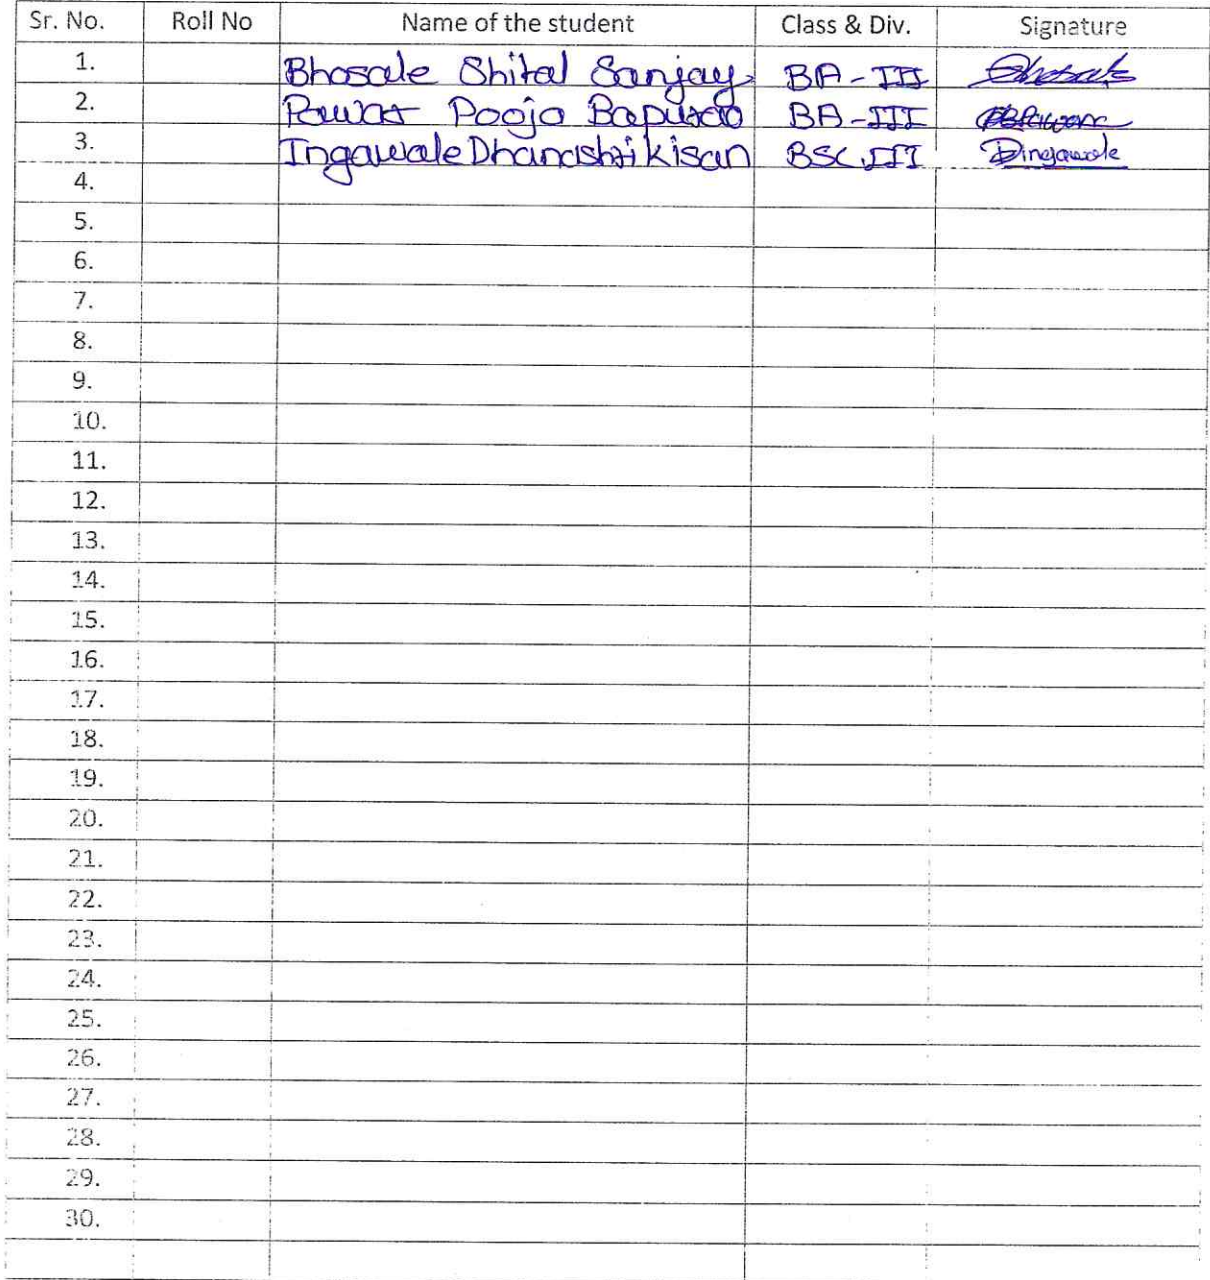 Sr. No. Roll No Name of the student Class & Div. Signature
1. Bhosale Shital Sanjay BA-III Bhosale
2. Pawar Pooja Bapurao BA-III PBPawar
3. Ingawale Dhanashri Kisan BSC.III Dingawale
4.
5.
6.
7.
8.
9.
10.
11.
12.
13.
14.
15.
16.
17.
18.
19.
20.
21.
22.
23.
24.
25.
26.
27.
28.
29.
30.